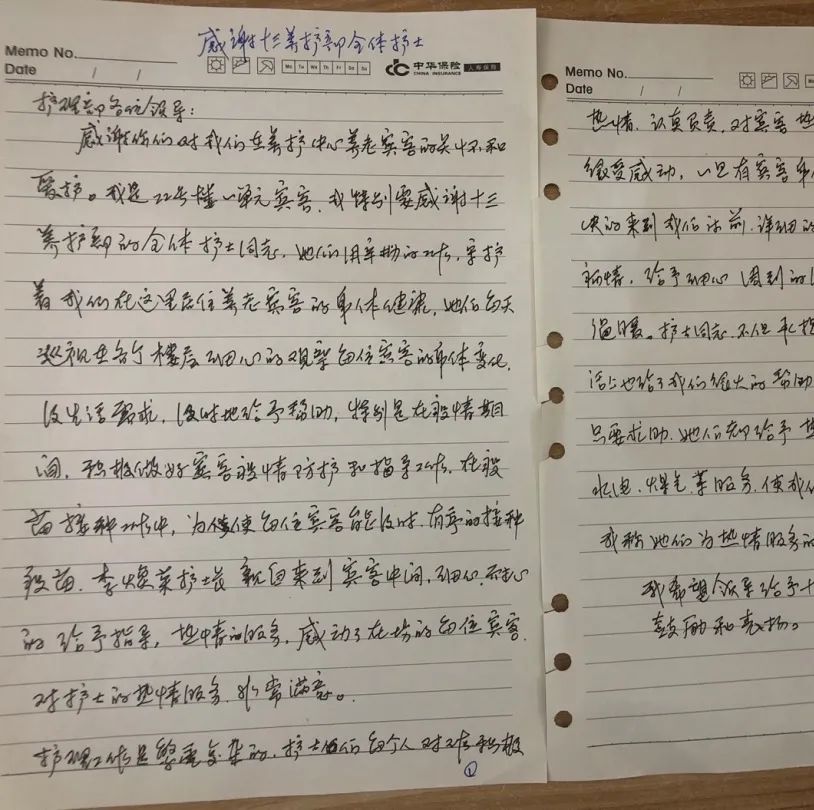 感谢十三养护部全体护士
Memo No.
Date / /
Mo Tu We Th Fr Sa Su
中华保险
CHINA INSURANCE
人寿保险
护理部各位领导:
感谢你们对我们在养护中心养老宾客的关怀和
爱护。我是22号楼一单元宾客,我特别要感谢十三
养护部的全体护士同志,她们用辛勤的工作,守护
着我们在这里居住养老宾客的身体健康,她们每天
巡视在各个楼层细心的观察每位宾客的身体变化,
及生活需求,及时地给予帮助,特别是在疫情期
间,积极做好宾客疫情防护和指导工作,在疫
苗接种工作中,为使每位宾客能及时、有序的接种
疫苗,李焕英护士长亲自来到宾客中间,细心、耐心
的给予指导,热情的服务,感动了在场的每位宾客,
对护士的热情服务,非常满意。
护理工作是繁重复杂的,护士们每个人对工作积极
①
Memo No.
Date / /
热情、认真负责,对宾客热
很受感动,一旦有宾客身
快的来到我们访前,详细的
病情,给予细心周到的
温暖。护士同志不但
活上也给了我们很大的帮助
只要求助,她们都给予热
水电、煤气等服务,使我们
我称她们为热情服务的
我希望领导给予十
鼓励和表扬。